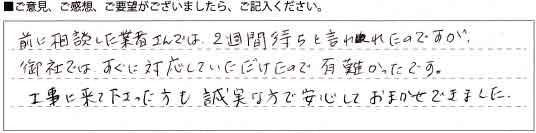 ■ご意見、ご感想、ご要望がございましたら、ご記入ください。
前に相談した業者さんでは、2週間待ちと言われたのですが、
御社では、すぐに対応していただけたので有難かったです。
工事に来て下さった方も誠実な方で安心しておまかせできました。